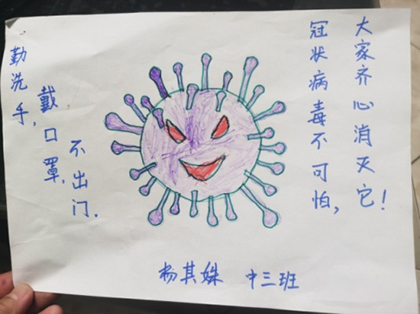 勤洗手,
戴口罩,
不出门.
冠状病毒不可怕,
大家齐心消灭它!
杨其姝 中三班